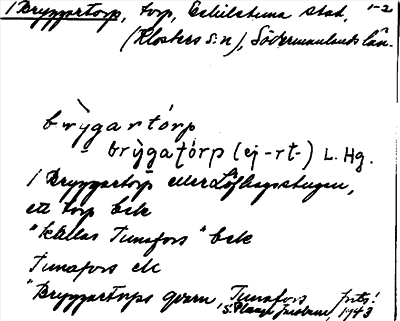 1 Bryggartorp, torp, Eskilstuna stad, 1-2
(Klosters s:n), Södermanlands län.
brỳgartórp
- brỳgaţórp (ej -rt-) L. Hg.
1 Bryggartorp eller Löfhagsstugan,
ett torp bek
"Källas Tunafors" bek
Tunafors ek
"Bryggartorps qvarn, Tunafors forts!
1743